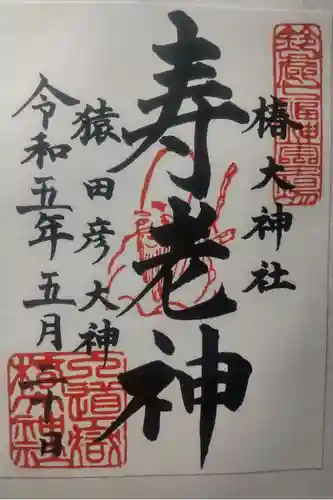 椿大神社
寿老神
猿田彦大神
令和五年五月二十日